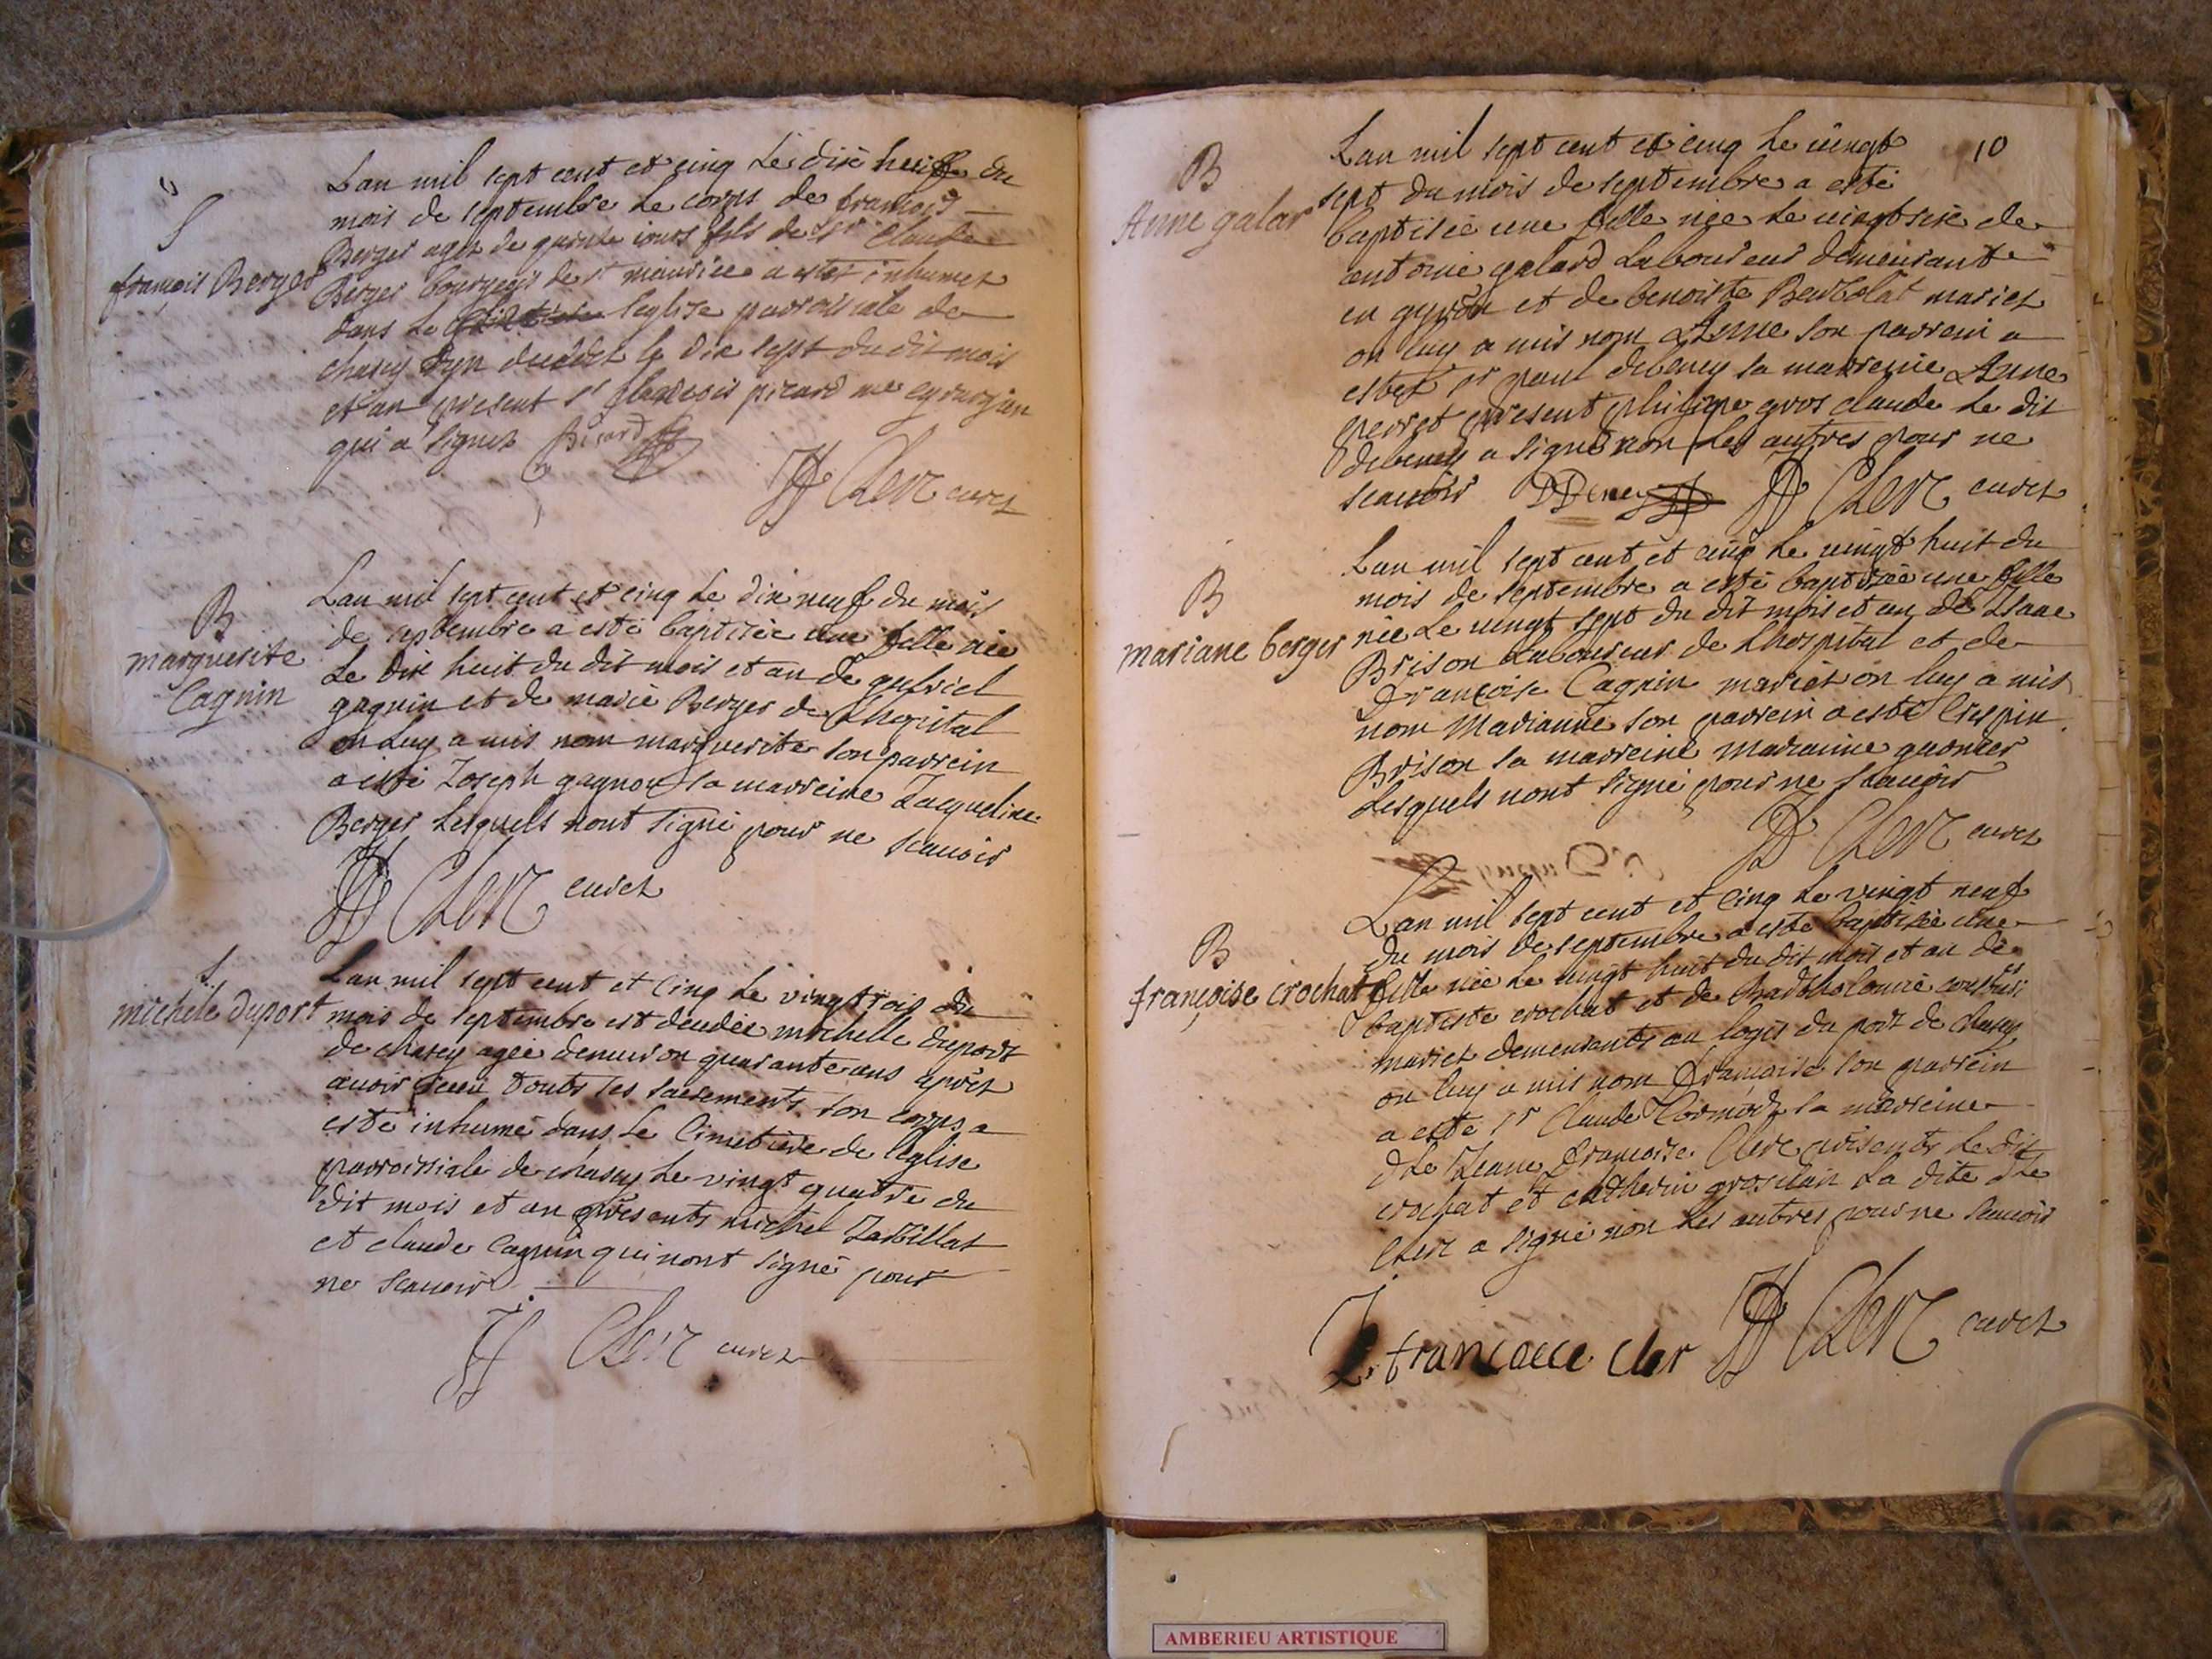 S
françois Berger
Lan mil sept cent et cinq le dix du
mois de septembre le corps de françois
Berger agez de quinze iours fils de sr Claude
Berger bourgeois de st maurice a estez inhumez
dans le leglise parroissiale de
chasey decedez le dix sept du dit mois
et an present sr picard me cyrurgien
qui a signez Picard
Clerc curez
B
marguerite
Cagnin
Lan mil sept cent et cinq le dix neuf du mois
de septembre a esté baptisée une fille née
le dix huit du dit mois et an de gabriel
gagnin et de marie Berger de Lhopital
on luy a mis nom marguerite son parrein
a esté Joseph gagnon la marreine Jacqueline
Berger lesquels nont signé pour ne scauoir
Clerc curez
S
michele duport
Lan mil sept cent et cinq le vingt trois du
mois de septembre est decedée michelle duport
de chasey agée denuiron quarante ans aprez
auoir receu touts ses sacrements son corps a
esté inhumé dans le Cimetiere de leglise
parroissiale de chasey le vingt quatre du
dit mois et an presents michel
et claude Cagnin qui nont signé pour
ne scauoir
Clerc curez
10
B
Anne galar
Lan mil sept cent et cinq le uingt
sept du mois de septembre a esté
baptisée une fille née le uingt sixe de
antoine galard Laboureur demeurant
en gyron et de benoiste Bertholat mariez
on luy a mis nom Anne son parrain a
estez sr paul debeney sa marreine Anne
perret present philippe gros claude le dit
debeney a signé non les autres pour ne
scauoir DDeney Clerc curez
B
mariane berger
Lan mil sept cent et cinq le uingt huit du
mois de septembre a esté baptisée une fille
née le uingt sept du dit mois et an de Isaac
Brison Laboureur de Lhospital et de
Françoise Cagnin mariez on luy a mis
nom Marianne son parrein a esté Crespin
Brison la marreine Marianne
Lesquels nont signé pour ne scauoir
Clerc curez
B
françoise crochat
Lan mil sept cent et cinq le vingt neuf
du mois de septembre a esté baptisée une
fille née le uingt huit du dit mois et an de
baptiste crochat et de Bartholomie
mariez demeurants au logis du port de chasey
on luy a mis nom Françoise son parrein
a esté sr Claude la marreine
dlle Jeanne Françoise Clerc presents le dit
crochat et La dite dlle
Clerc a signé non les autres pour ne scauoir
J francoece cler Clerc curez
AMBERIEU ARTISTIQUE